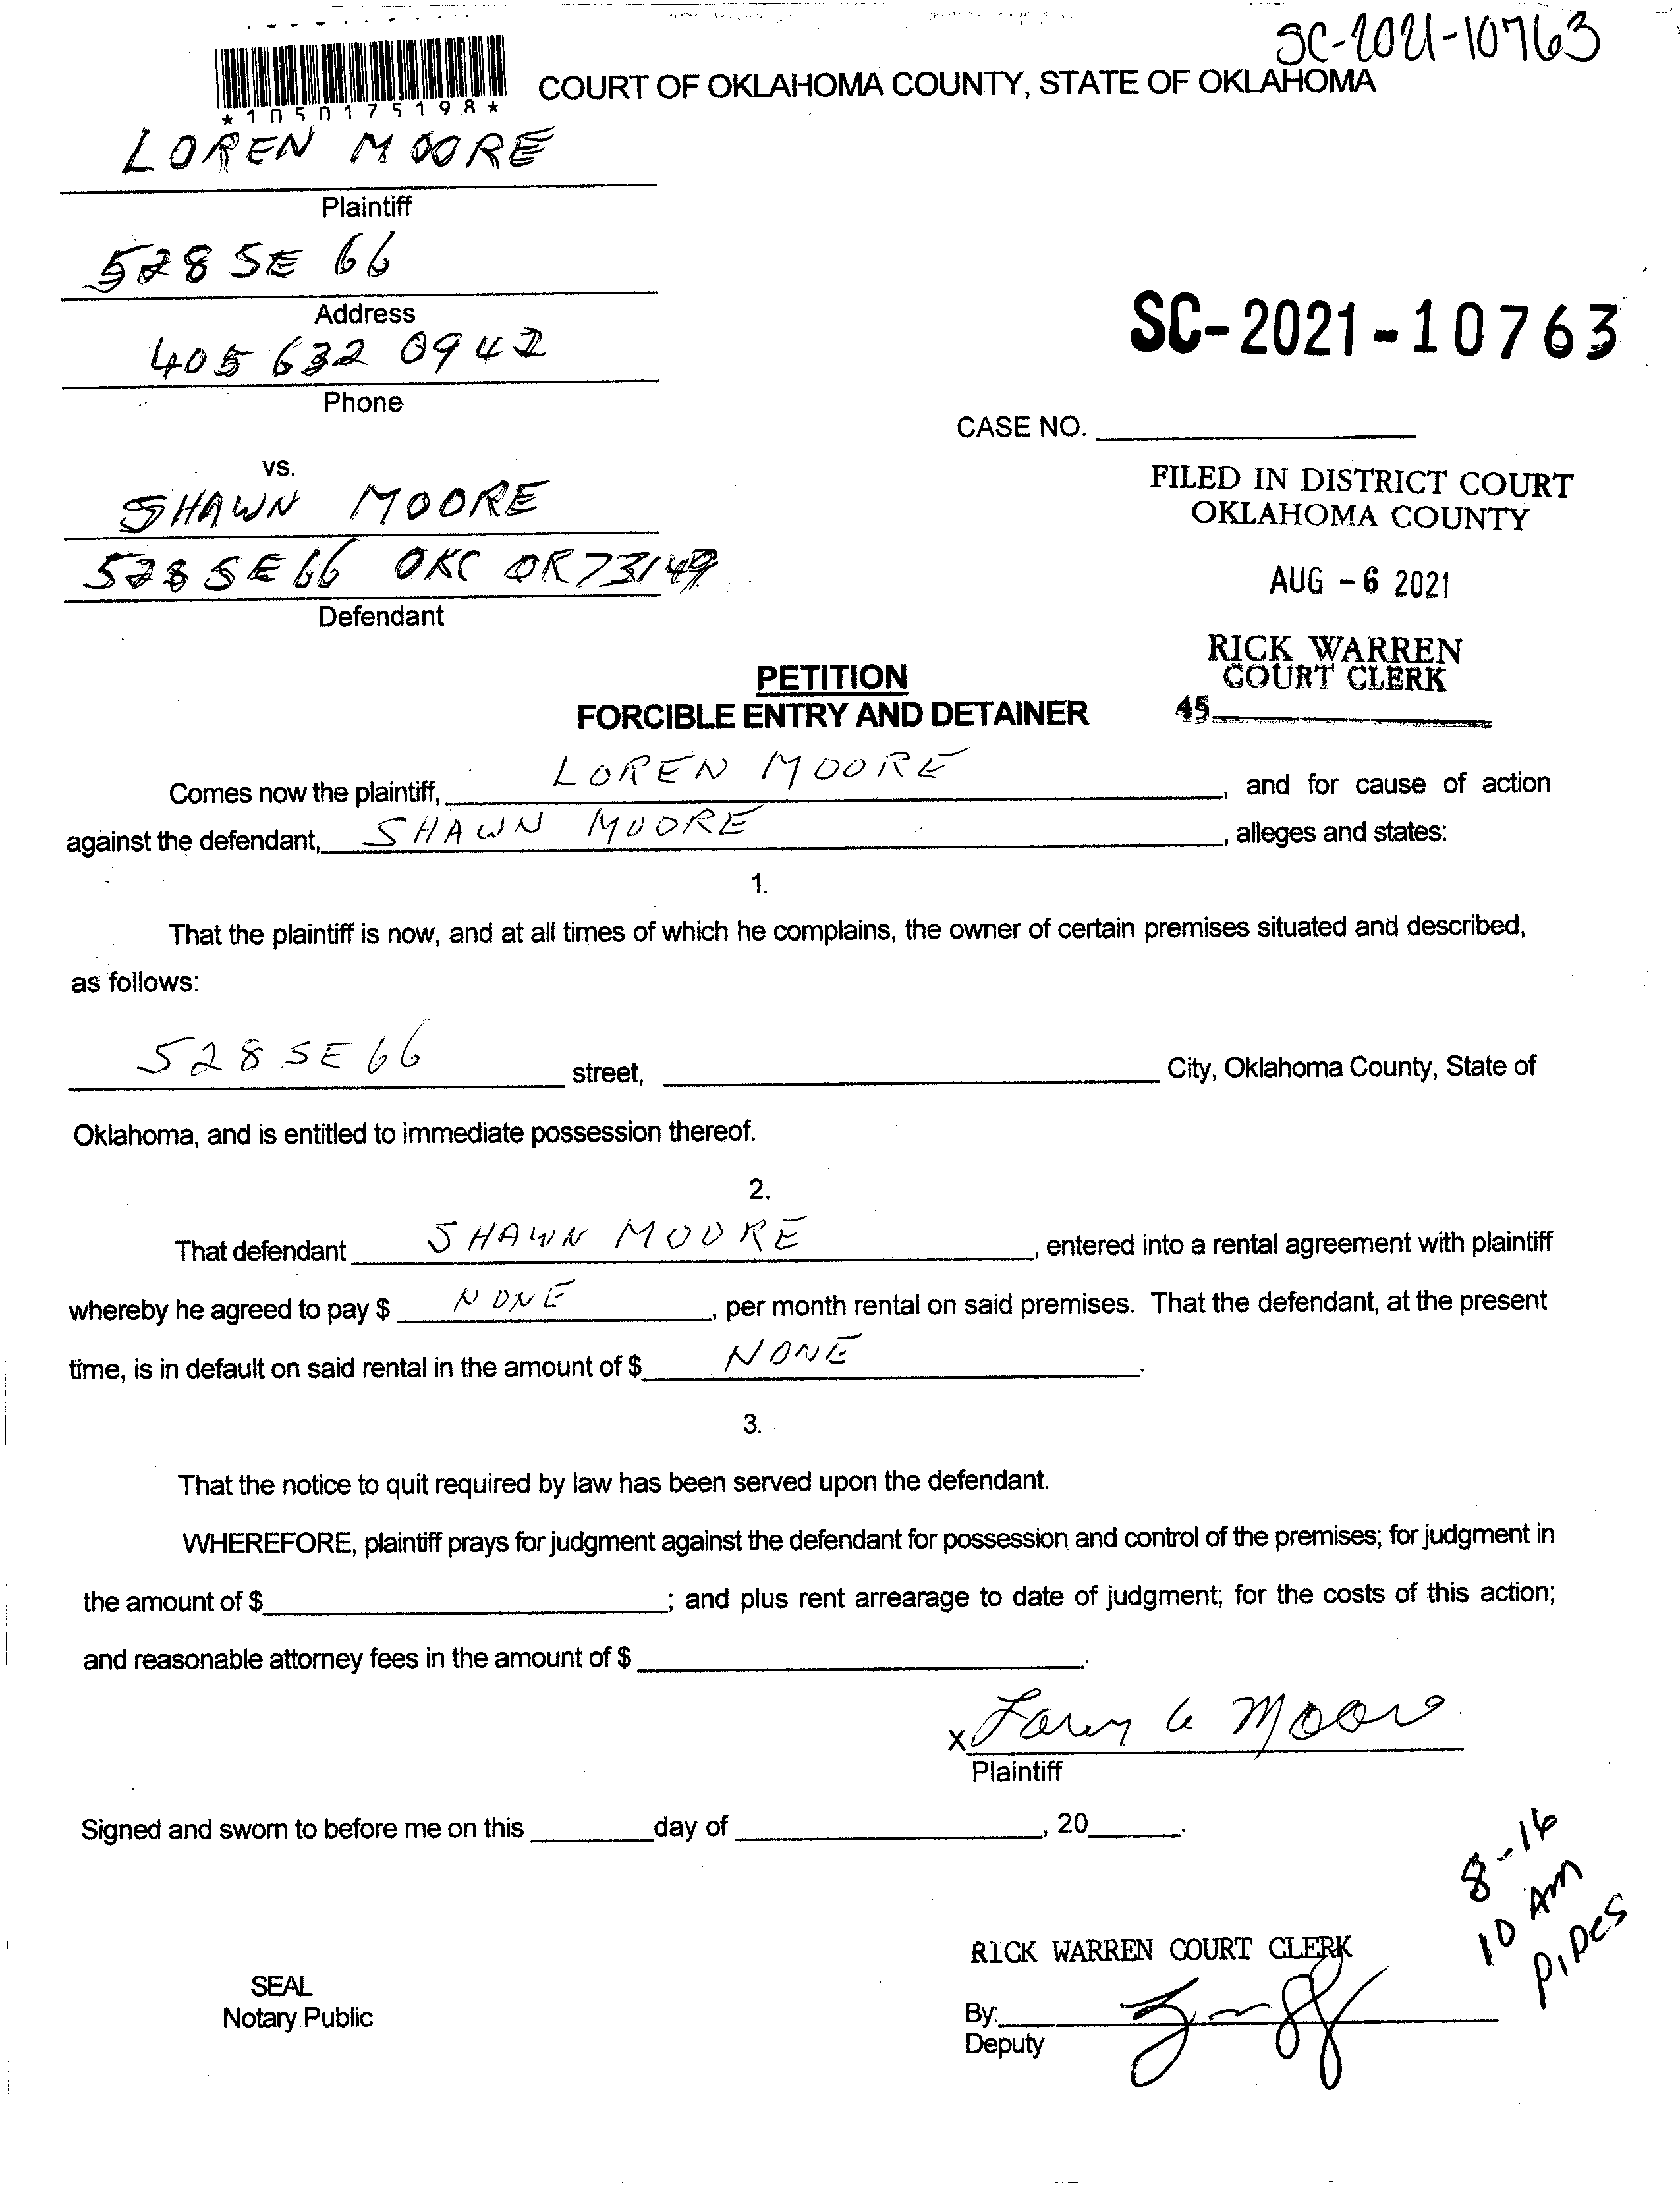 SC-2021-10763
COURT OF OKLAHOMA COUNTY, STATE OF OKLAHOMA
*1050175198*
LOREN MOORE
Plaintiff
528 SE 66
Address
405 632 0942
Phone
SC-2021-10763
CASE NO.
vs.
SHAWN MOORE
528 SE 66 OKC OK 73149
Defendant
FILED IN DISTRICT COURT
OKLAHOMA COUNTY
AUG -6 2021
RICK WARREN
COURT CLERK
45
PETITION
FORCIBLE ENTRY AND DETAINER
Comes now the plaintiff, LOREN MOORE, and for cause of action
against the defendant, SHAWN MOORE, alleges and states:
1.
That the plaintiff is now, and at all times of which he complains, the owner of certain premises situated and described,
as follows:
528 SE 66 street, City, Oklahoma County, State of
Oklahoma, and is entitled to immediate possession thereof.
2.
That defendant SHAWN MOORE, entered into a rental agreement with plaintiff
whereby he agreed to pay $ NONE, per month rental on said premises. That the defendant, at the present
time, is in default on said rental in the amount of $ NONE.
3.
That the notice to quit required by law has been served upon the defendant.
WHEREFORE, plaintiff prays for judgment against the defendant for possession and control of the premises; for judgment in
the amount of $; and plus rent arrearage to date of judgment; for the costs of this action;
and reasonable attorney fees in the amount of $.
x Moore
Plaintiff
Signed and sworn to before me on this day of, 20.
8-16
10 AM
PIPES
RICK WARREN COURT CLERK
SEAL
Notary Public
By:
Deputy